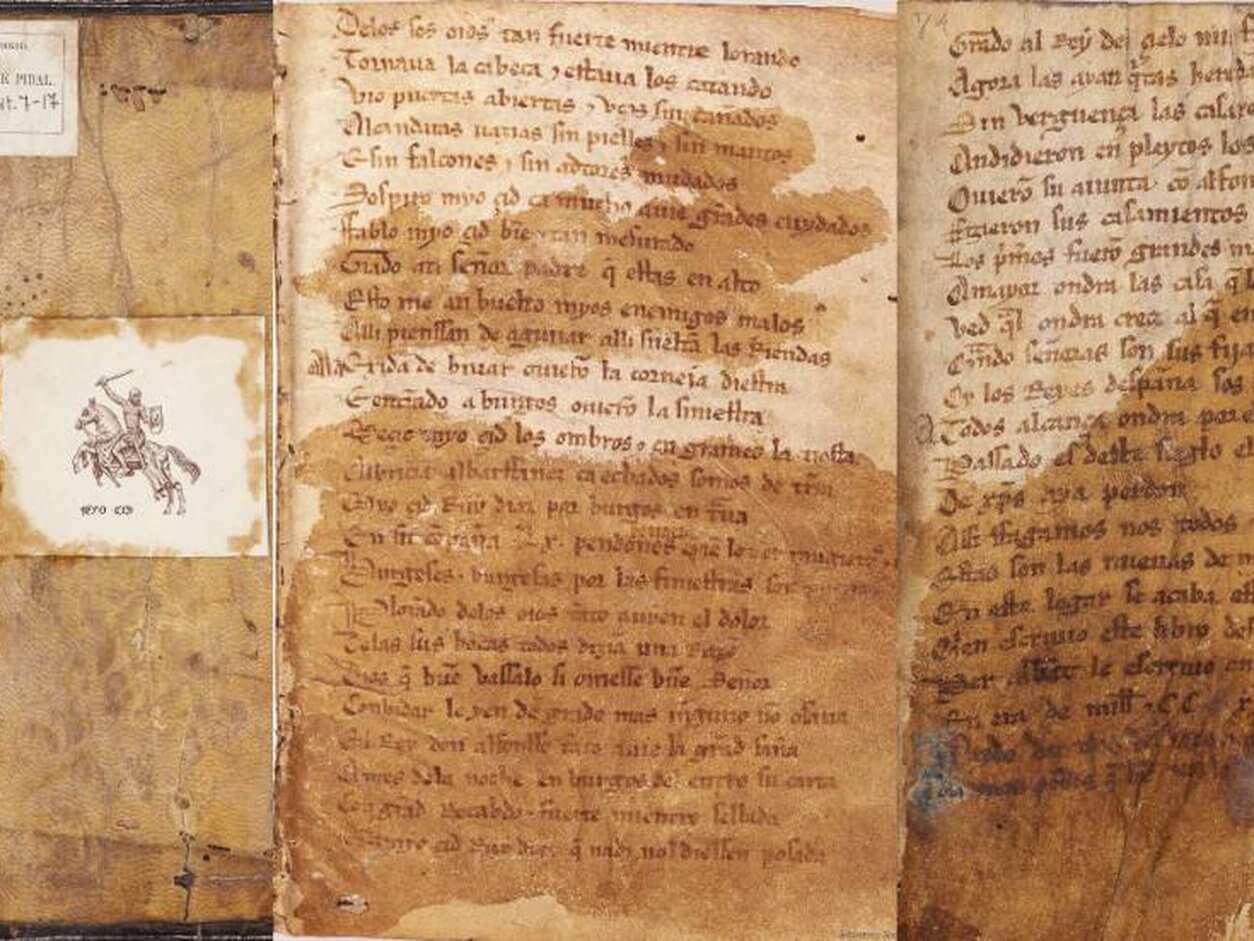 E PIDAL
nt. 7-17
MYO CID
Delos sos oios tan fuerte mientre lorando
Tornaua la cabeça ⁊ estaua los catando
Vio puertas abiertas ⁊ vços sin cañados
Alcandaras uazias sin pielles ⁊ sin mantos
E sin falcones ⁊ sin adtores mudados
Sospiro myo çid ca mucho auie grãdes cuydados
Ffablo myo çid biẽ ⁊ tan mesurado
Grado ati señor padre q̃ estas en alto
Esto me an buelto myos enemigos malos
Alli pienssan de aguiiar alli sueltã las Riendas
Ala Exida de biuar ouierõ la corneia diestra
E entrãdo a burgos ouierõ la siniestra
Meçio myo çid los ombros ⁊ en grameo la tiesta
Albricia albarffanez ca echados somos de trrã
Myo çid Ruy diaz por burgos en trãua
En su cõpaña Lx pendones
Burgeses ⁊ burgesas por las finiestras son
Plorãdo delos oios tãto auyen el dolor
Delas sus bocas todos dizia una Razõ
Dios q̃ buẽ vassalo si ouiesse buẽ Señor
Conbidar le yen de grado mas ninguno nõ osaua
El Rey don alfonsso tãto auie la grãd saña
Antes dela noche en burgos del entro su carta
Con grãd Recabdo ⁊ fuerte mientre sellada
Que a myo çid Ruy diaz q̃ nadi nol diessen posada
74
Grado al Rey del çielo mi
Agora las ayan q̃tas hereda
Sin verguença las casare
Andidieron en pleytos los
Ouierõ su aiunta cõ alfon
Fizieron sus casamientos
Los p̃mos fuerõ grandes m
A mayor ondra las casa q̃ l
Ved q̃l ondra creçe al q̃ en
Quãdo señoras son sus fija
Oy los Reyes despaña sos
A Todos alcança ondra por e
Passado es deste sieglo e
De xp̃s aya perdon
Assi ffagamos nos todos
Estas son las nueuas de m
En este logar se acaba es
Quien escriuio este libro de
Per abbat le escriuio en
En era de mill ⁊ CC